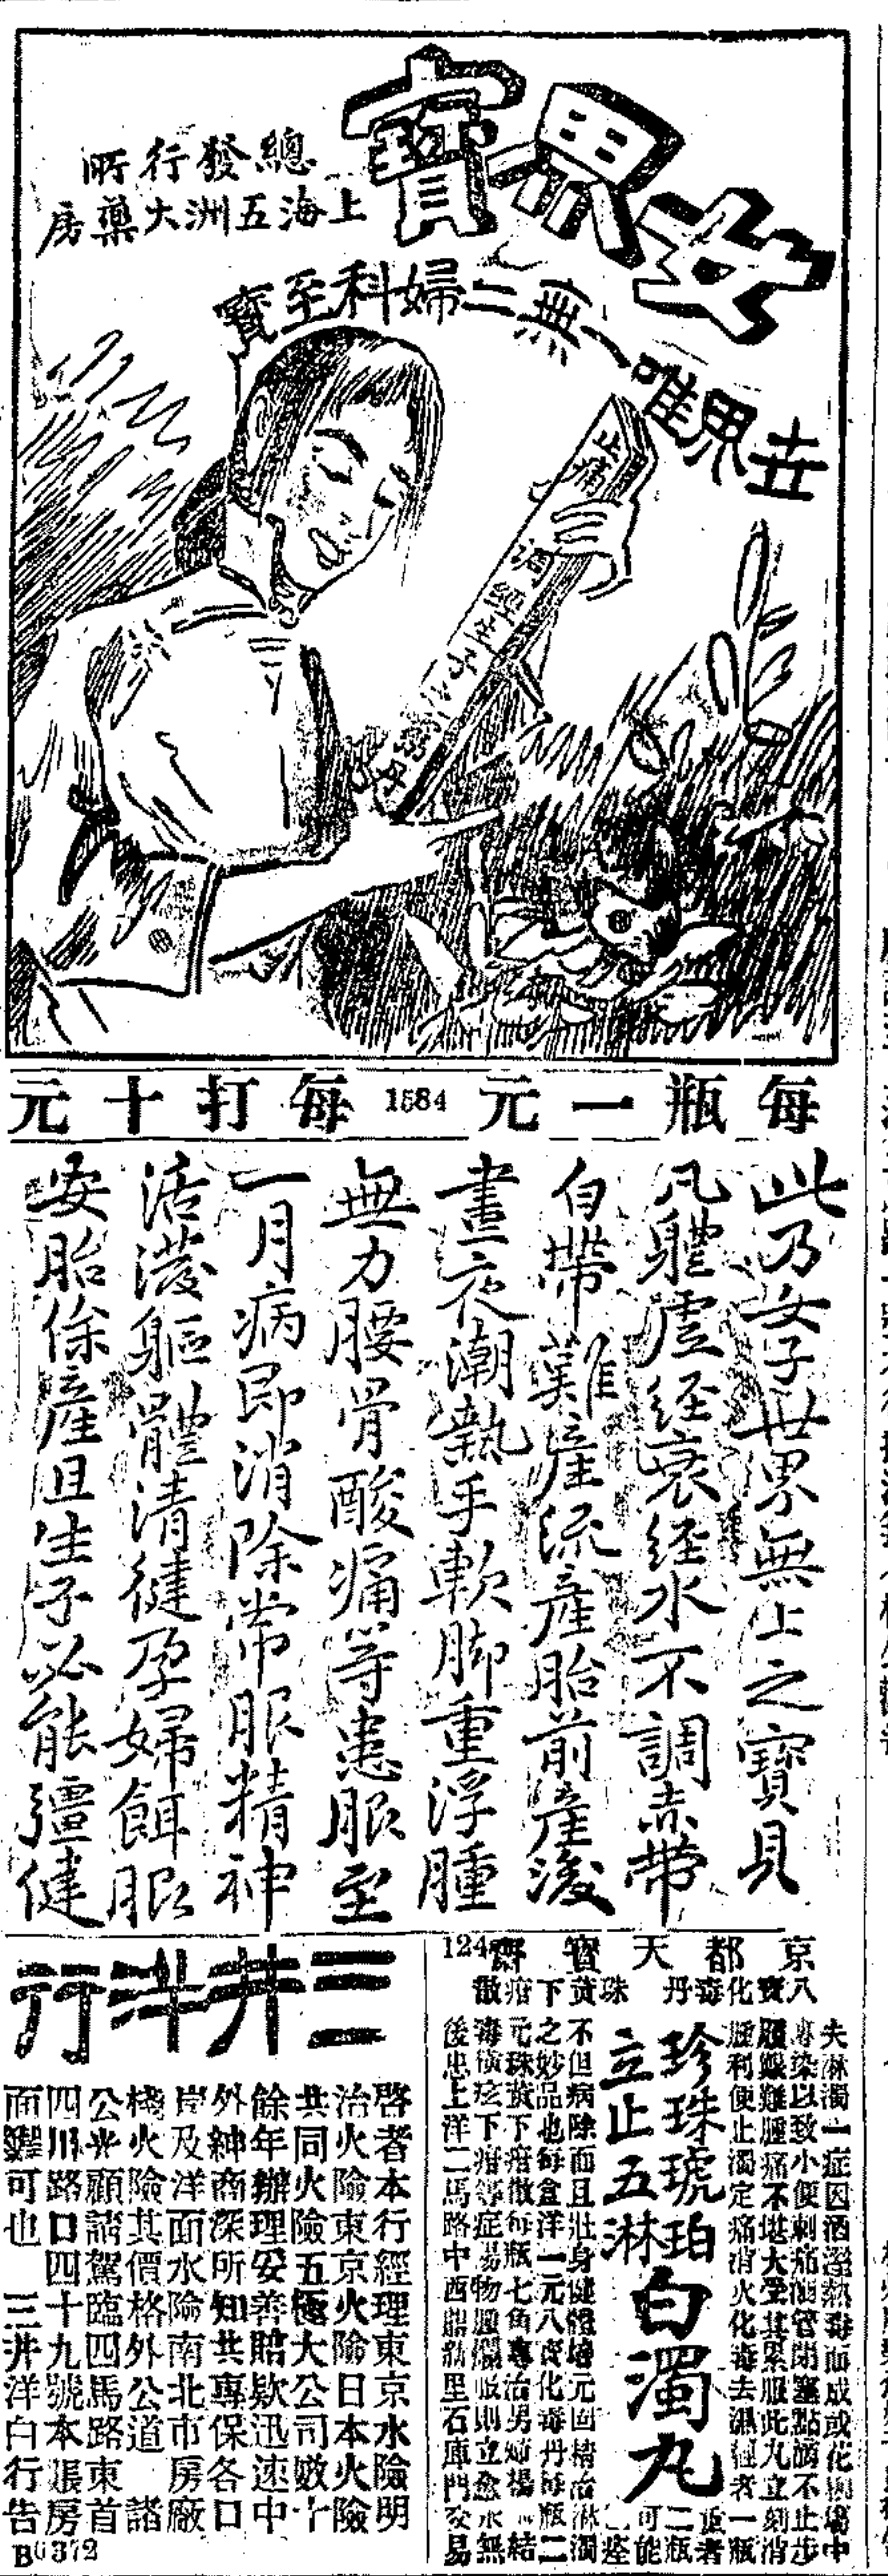 女界寶
總發行所
上海五洲大藥房
世界唯一無二婦科至寶
止痛
調經
每瓶一元
1584
每打十元
此乃女子世界無上之寶貝
凡軆虛經衰經水不調赤帶
白帶難產流產胎前產後
晝夜潮熱手軟脚重浮腫
無力腰骨酸痛等患服至
一月病即消除常服精神
活潑軀體清健孕婦餌服
安胎保產且生子必能彊健
京都天寶齋
124
八寶化毒丹
珠黄下疳散
夫淋濁一症因酒溼熱毒而成或花柳塲中
傳染以致小便刺痛溺管閉塞點滴不止步
履艱難腫痛不堪大受其累服此丸立刻消
腫利便止濁定痛消火化毒去濕輕者一瓶
重者二瓶
可能痊
珍珠琥珀白濁丸
立止五淋
不但病除而且壯身健體培元固精治淋濁
下之妙品也每盒洋一元八寶化毒丹每瓶二
元珠黄下疳散每瓶七角專治男婦楊梅結
毒橫痃下疳等症陽物腫爛敷則立愈永無
後患上洋二馬路中西鼎新里石庫門交易
三井洋行
啓者本行經理東京水險明
治火險東京火險日本火險
共同火險五極大公司數十
餘年辦理妥善賠欵迅速中
外紳商深所知共專保各口
岸及洋面水險南北市房廠
棧火險其價格外公道 諸
公光顧請駕臨四馬路東首
四川路口四十九號本賬房
面議可也 三井洋行告白
B0372